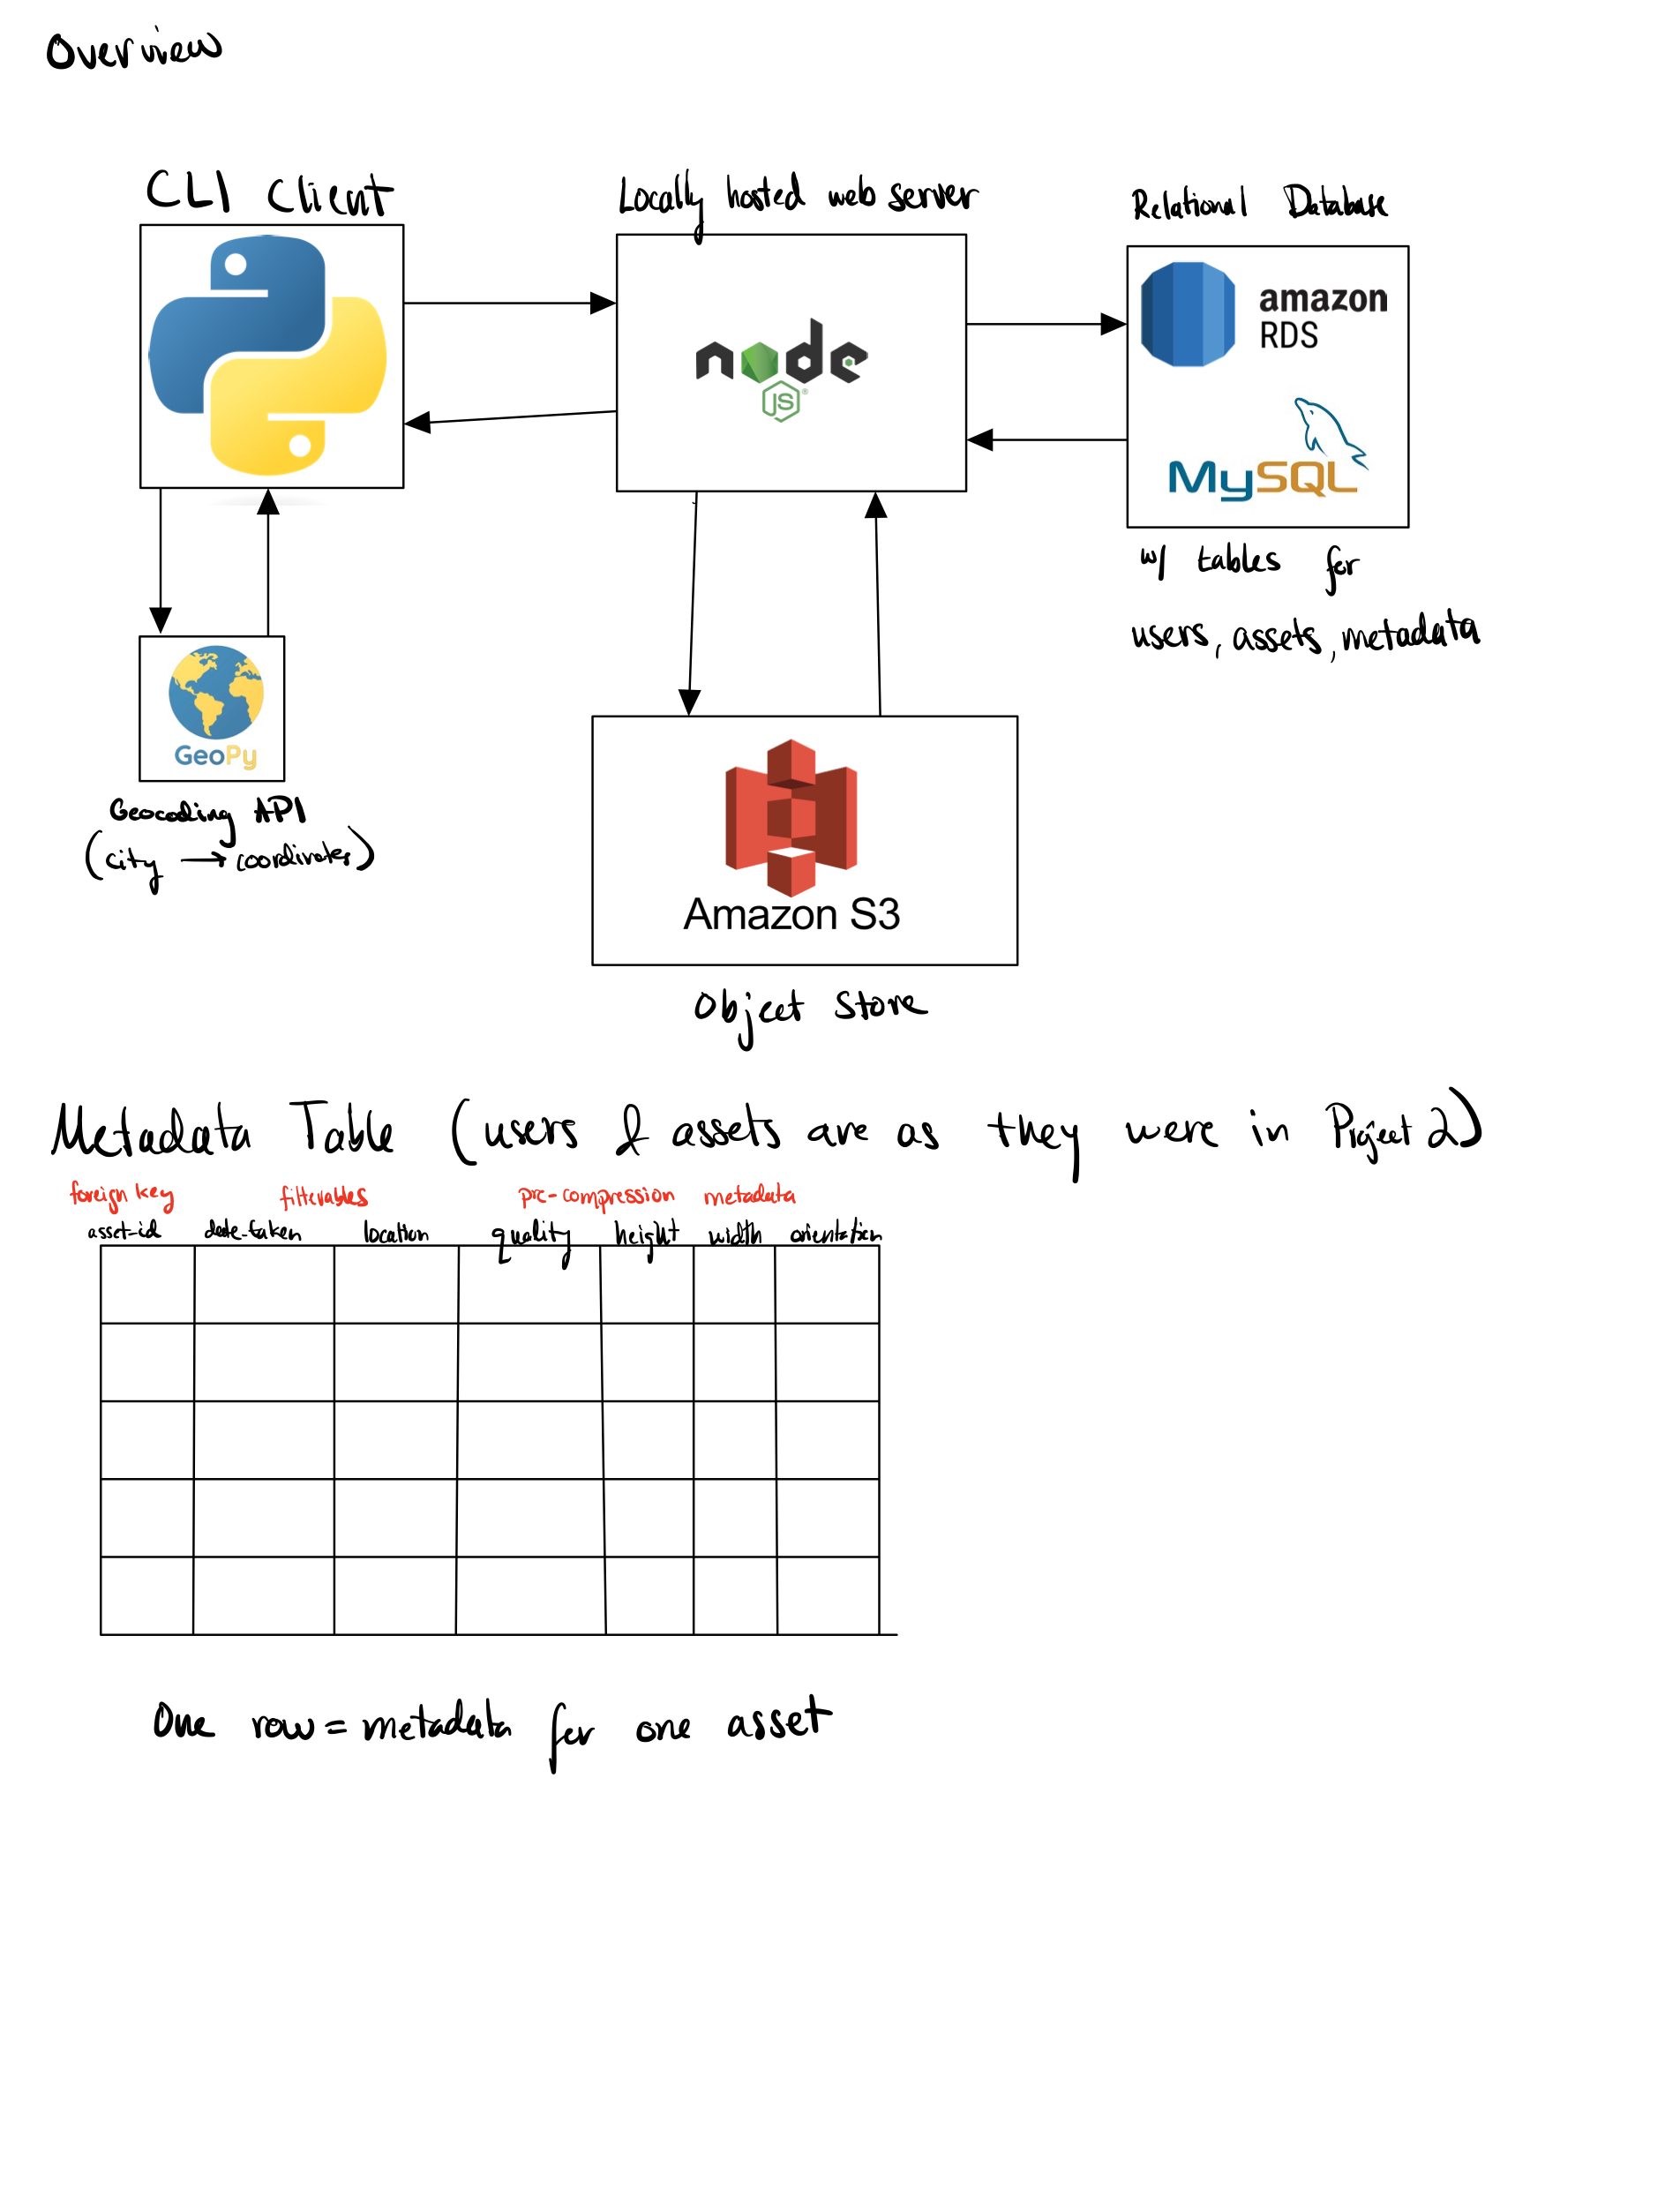 Overview
CLI Client
Locally hosted web server
Relational Database
amazon
RDS
node
JS
MySQL
w/ tables for
users, assets, metadata
GeoPy
Geocoding API
(city → coordinates)
Amazon S3
Object Store
Metadata Table (users & assets are as they were in Project 2)
foreign key filterables pre-compression metadata
asset-id date-taken location quality height width orientation
One row = metadata for one asset